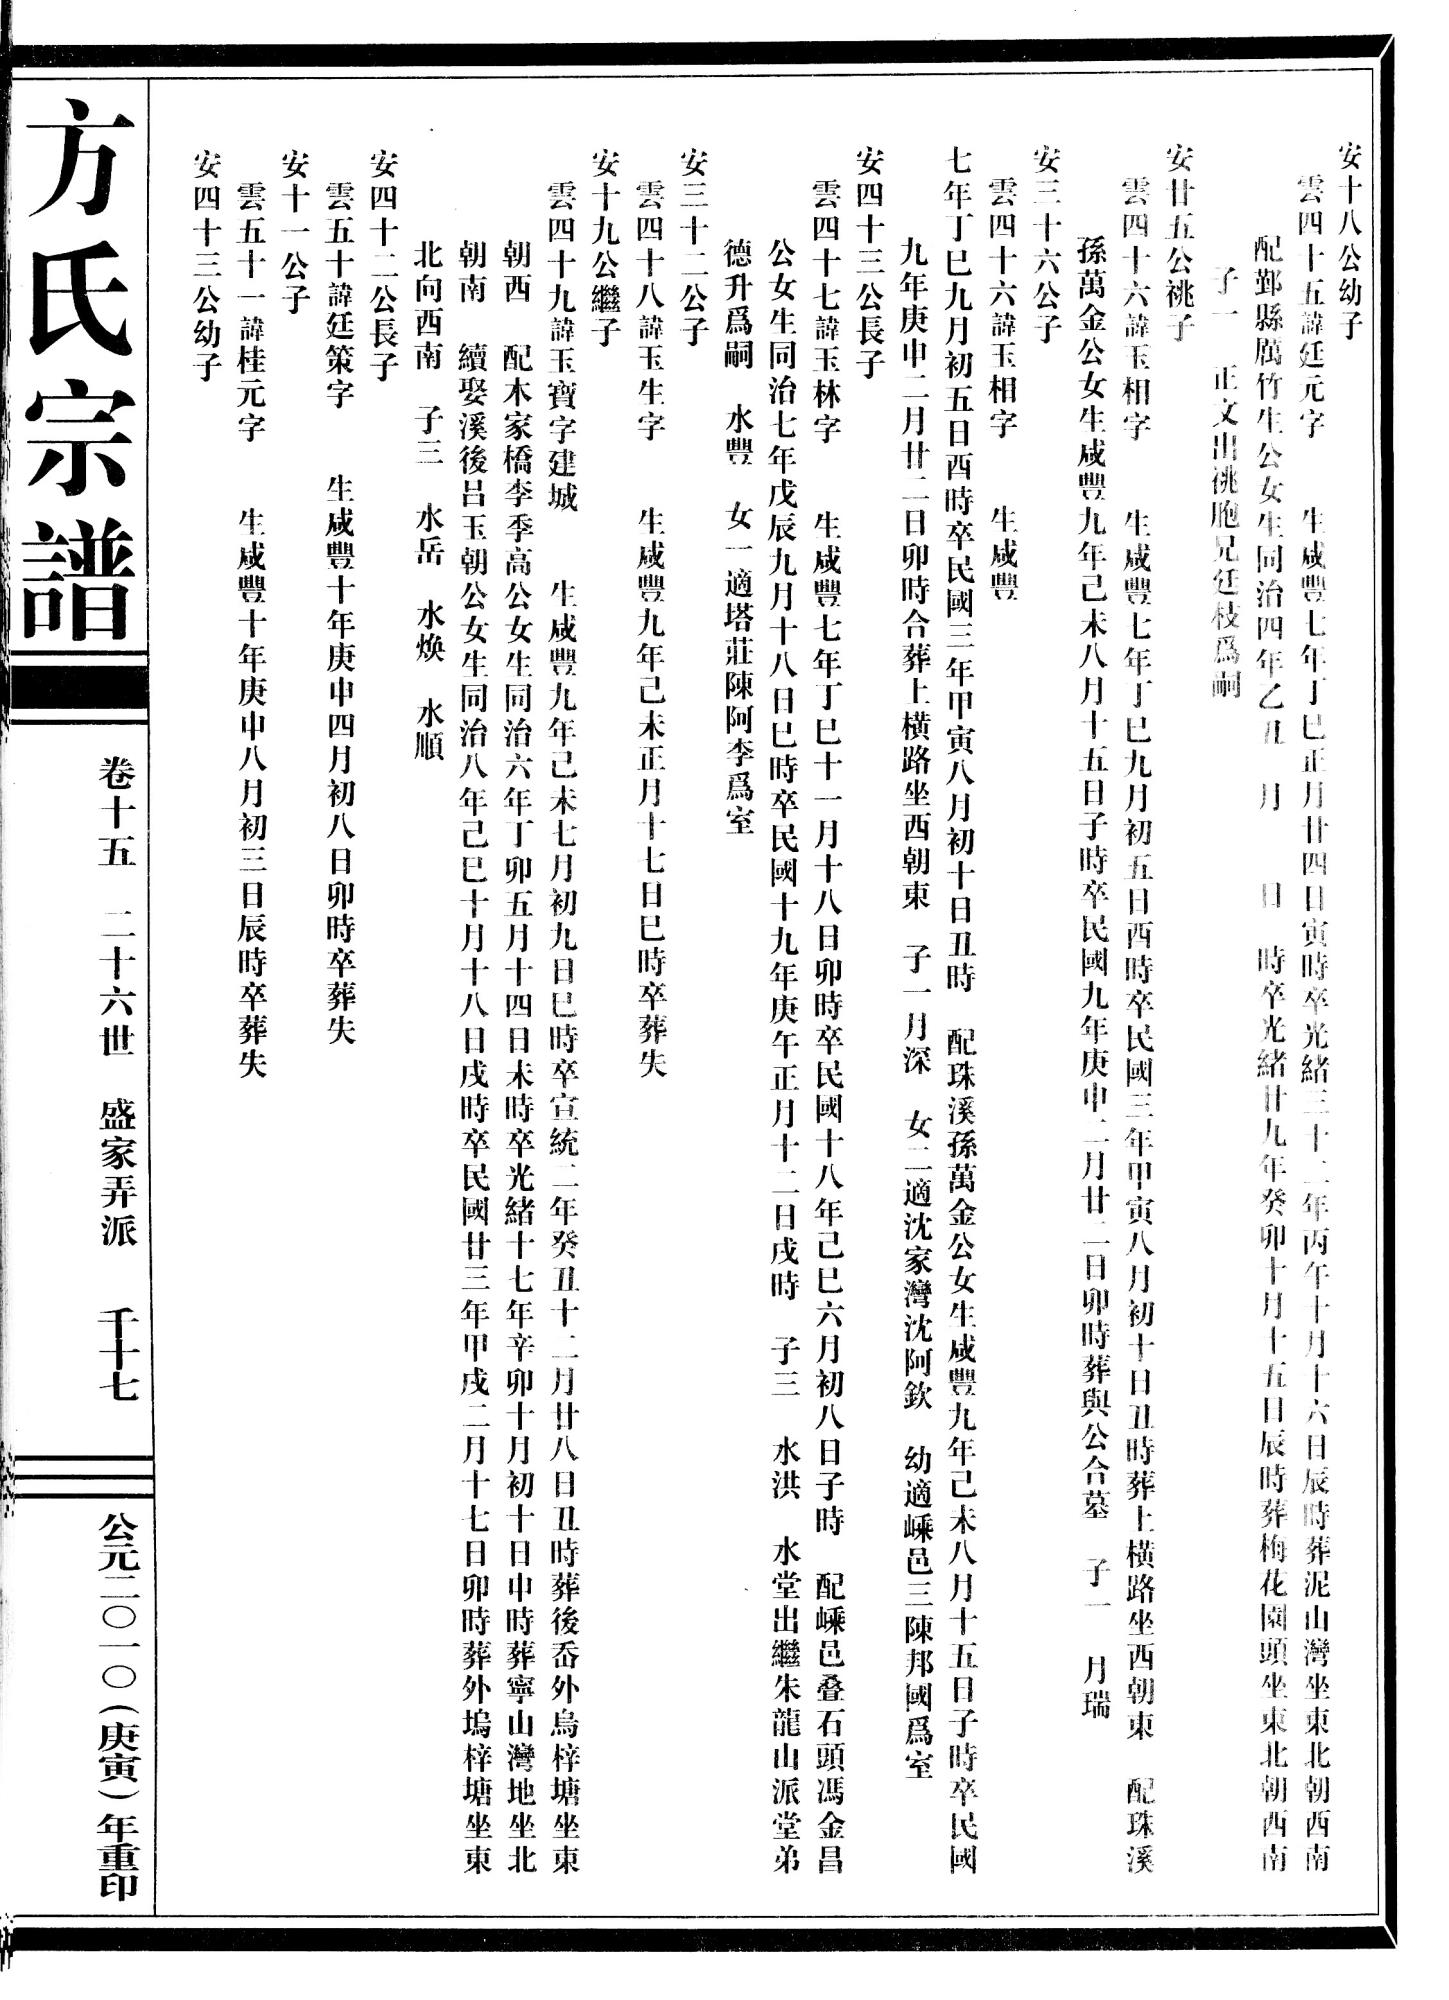 安十八公幼子
雲四十五諱廷元字　　生咸豐七年丁巳正月廿四日寅時卒光緒三十二年丙午十月十六日辰時葬泥山灣坐東北朝西南
配鄞縣厲竹生公女生同治四年乙丑　月　　日　時卒光緒廿九年癸卯十月十五日辰時葬梅花園頭坐東北朝西南
子一　　正文出祧胞兄廷枝爲嗣
安廿五公祧子
雲四十六諱玉相字　　生咸豐七年丁巳九月初五日酉時卒民國三年甲寅八月初十日丑時葬上橫路坐西朝東　配珠溪
孫萬金公女生咸豐九年己未八月十五日子時卒民國九年庚申二月廿二日卯時葬與公合墓　子一　月瑞
安三十六公子
雲四十六諱玉相字　　生咸豐
七年丁巳九月初五日酉時卒民國三年甲寅八月初十日丑時　配珠溪孫萬金公女生咸豐九年己未八月十五日子時卒民國
九年庚申二月廿二日卯時合葬上橫路坐西朝東　子一月深　女二適沈家灣沈阿欽　幼適嵊邑三陳邦國爲室
安四十三公長子
雲四十七諱玉林字　　生咸豐七年丁巳十一月十八日卯時卒民國十八年己巳六月初八日子時　配嵊邑叠石頭馮金昌
公女生同治七年戊辰九月十八日巳時卒民國十九年庚午正月十二日戌時　子三　水洪　水堂出繼朱龍山派堂弟
德升爲嗣　水豐　女一適塔莊陳阿李爲室
安三十二公子
雲四十八諱玉生字　　生咸豐九年己未正月十七日巳時卒葬失
安十九公繼子
雲四十九諱玉寶字建城　　生咸豐九年己未七月初九日巳時卒宣統二年癸丑十二月廿八日丑時葬後岙外烏梓塘坐東
朝西　配木家橋李季高公女生同治六年丁卯五月十四日未時卒光緒十七年辛卯十月初十日申時葬寧山灣地坐北
朝南　續娶溪後呂玉朝公女生同治八年己巳十月十八日戌時卒民國廿三年甲戌二月十七日卯時葬外塢梓塘坐東
北向西南　子三　水岳　水煥　水順
安四十二公長子
雲五十諱廷策字　　生咸豐十年庚申四月初八日卯時卒葬失
安十一公子
雲五十一諱桂元字　　生咸豐十年庚申八月初三日辰時卒葬失
安四十三公幼子
方氏宗譜
卷十五　二十六世　盛家弄派　千十七
公元二〇一〇（庚寅）年重印